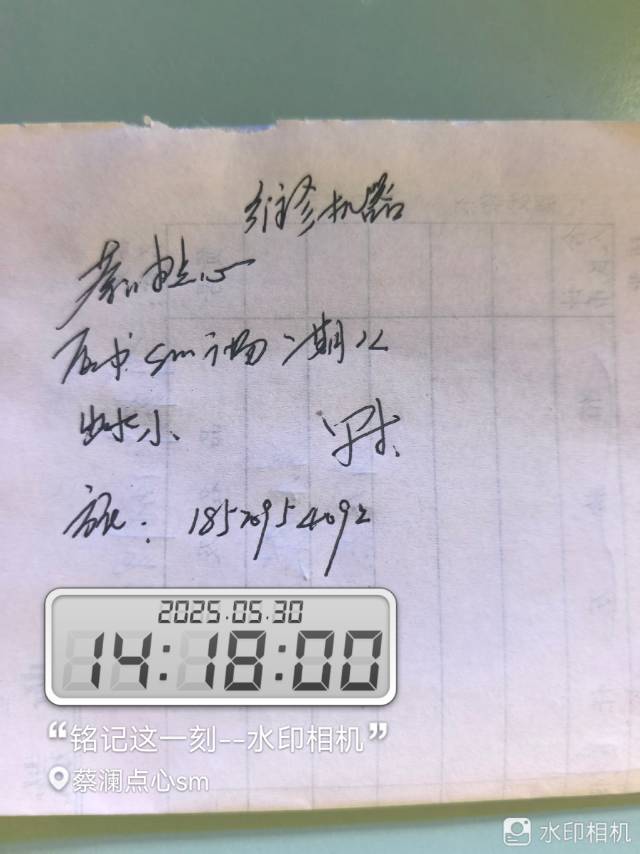 维修机器
蔡澜点心
sm广场二期
出水小
: 18520954092
2025.05.30
14:18:00
“铭记这一刻--水印相机”
蔡澜点心sm
水印相机